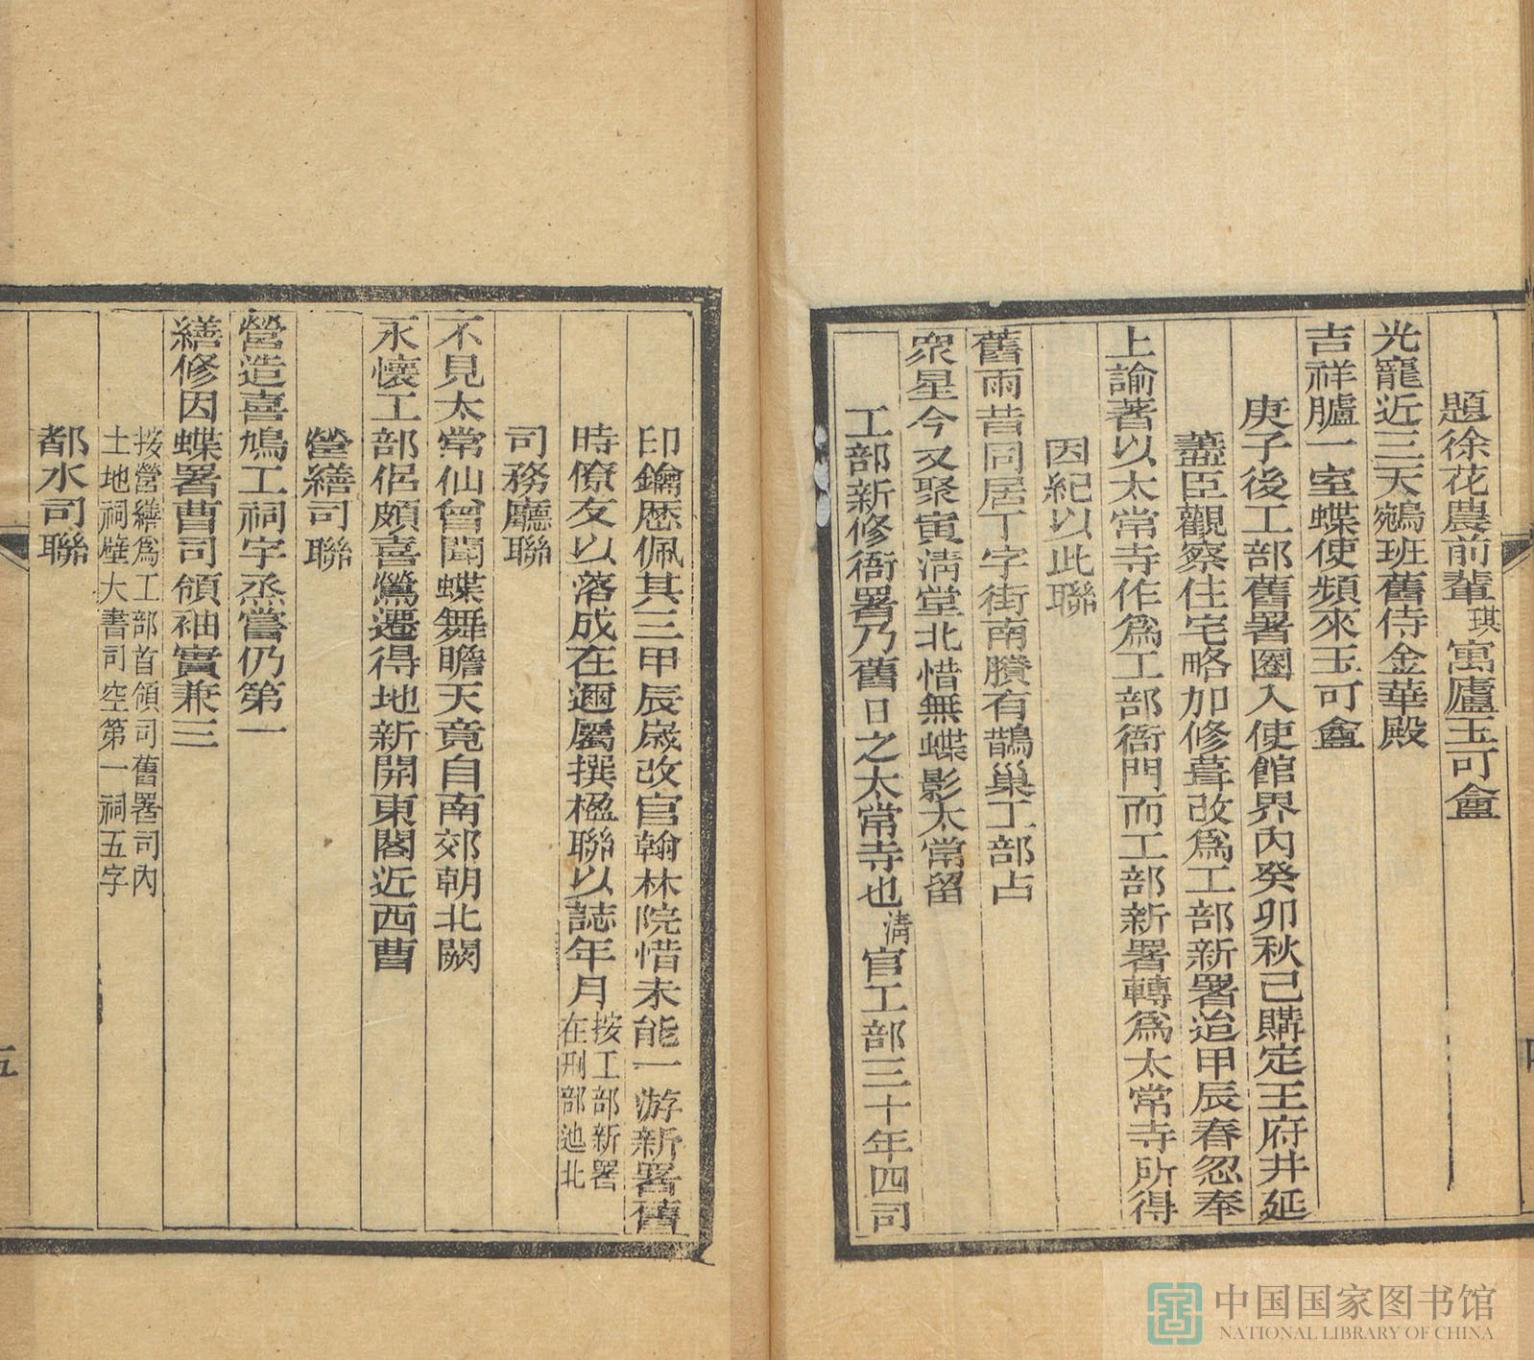 題徐花農前輩琪寓廬玉可盦
光寵近三天鵷班舊侍金華殿
吉祥臚一室蝶使頻來玉可盦
庚子後工部舊署圈入使館界內癸卯秋已購定王府井延
藎臣觀察住宅略加修葺改爲工部新署迨甲辰春忽奉
上諭著以太常寺作爲工部衙門而工部新署轉爲太常寺所得
因紀以此聯
舊雨昔同居丁字街南賸有鵲巢工部占
衆星今又聚寅淸堂北惜無蝶影太常留
工部新修衙署乃舊日之太常寺也淸官工部三十年四司
印鑰歷佩其三甲辰歲改官翰林院惜未能一游新署舊
時僚友以落成在邇屬撰楹聯以誌年月按工部新署
在刑部迆北
司務廳聯
不見太常仙曾聞蝶舞瞻天竟自南郊朝北闕
永懷工部侶頗喜鶯遷得地新開東閣近西曹
營繕司聯
營造喜鳩工祠宇烝嘗仍第一
繕修因蝶署曹司領袖實兼三
按營繕爲工部首領司舊署司內
土地祠壁大書司空第一祠五字
都水司聯
五
中国国家图书馆
NATIONAL LIBRARY OF CHINA